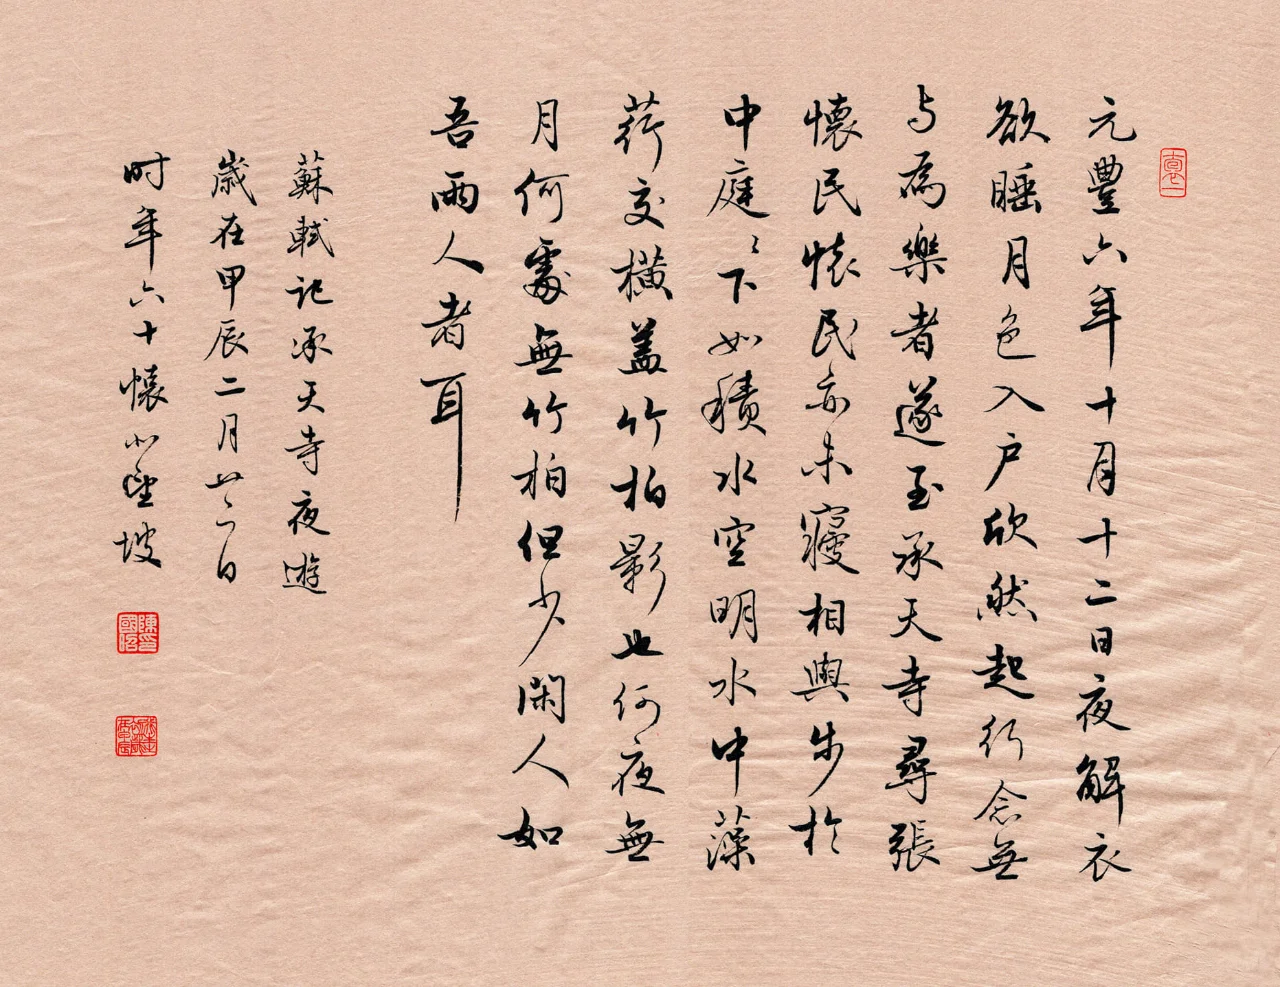 元豐六年十月十二日夜解衣
欲睡月色入户欣然起行念無
与為樂者遂至承天寺尋張
懷民懷民亦未寢相與步於
中庭〻下如積水空明水中藻
荇交橫蓋竹柏影也何夜無
月何處無竹柏但少閑人如
吾兩人者耳
蘇軾記承天寺夜遊
歲在甲辰二月廿日
时年六十懷坡